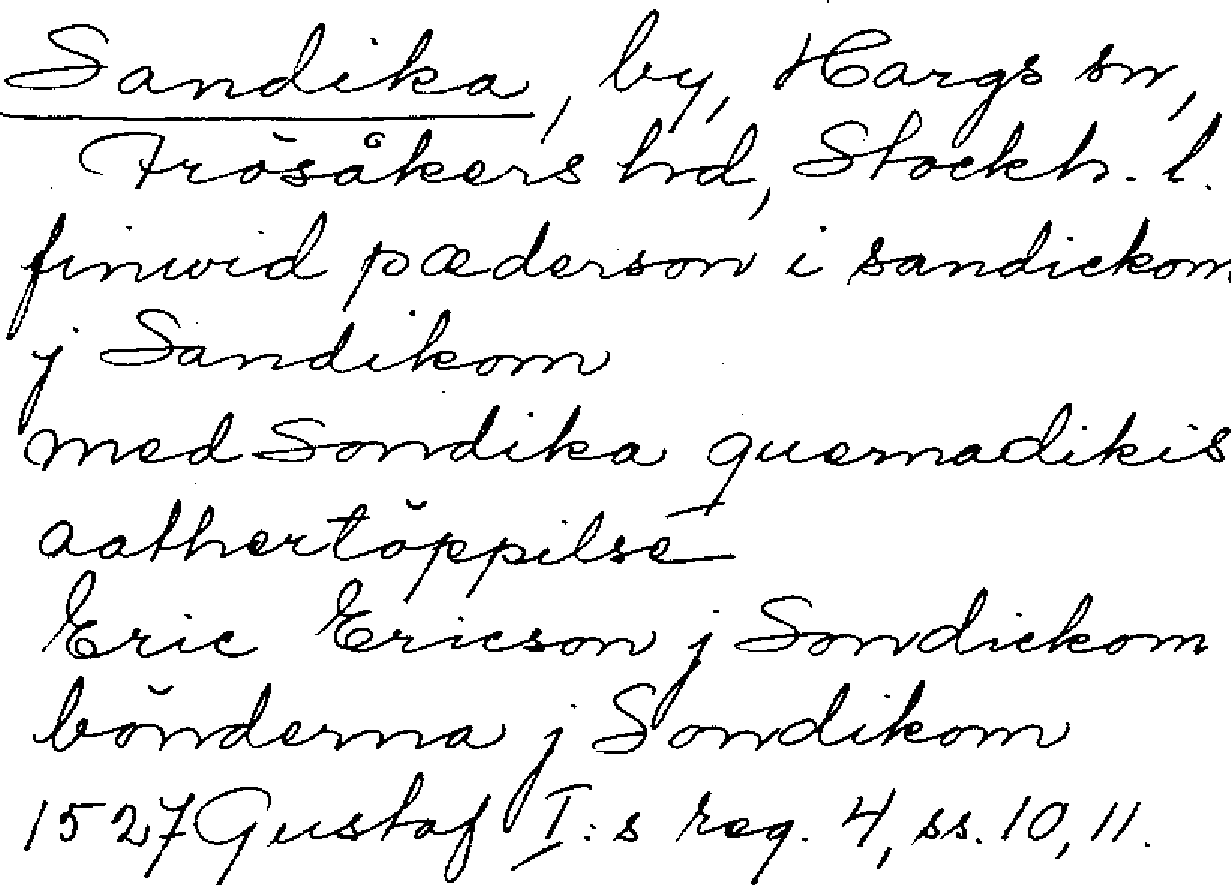 Sandika, by, Hargs sn,
Frösåkers hd, Stockh. l.
finwid pæderson i sandickom
j Sandikom
med Sondika quernadikis
aathertöppilse
Eric Ericson j Sondickom
bönderna j Sondikom
1527 Gustaf I:s reg. 4, ss. 10, 11.